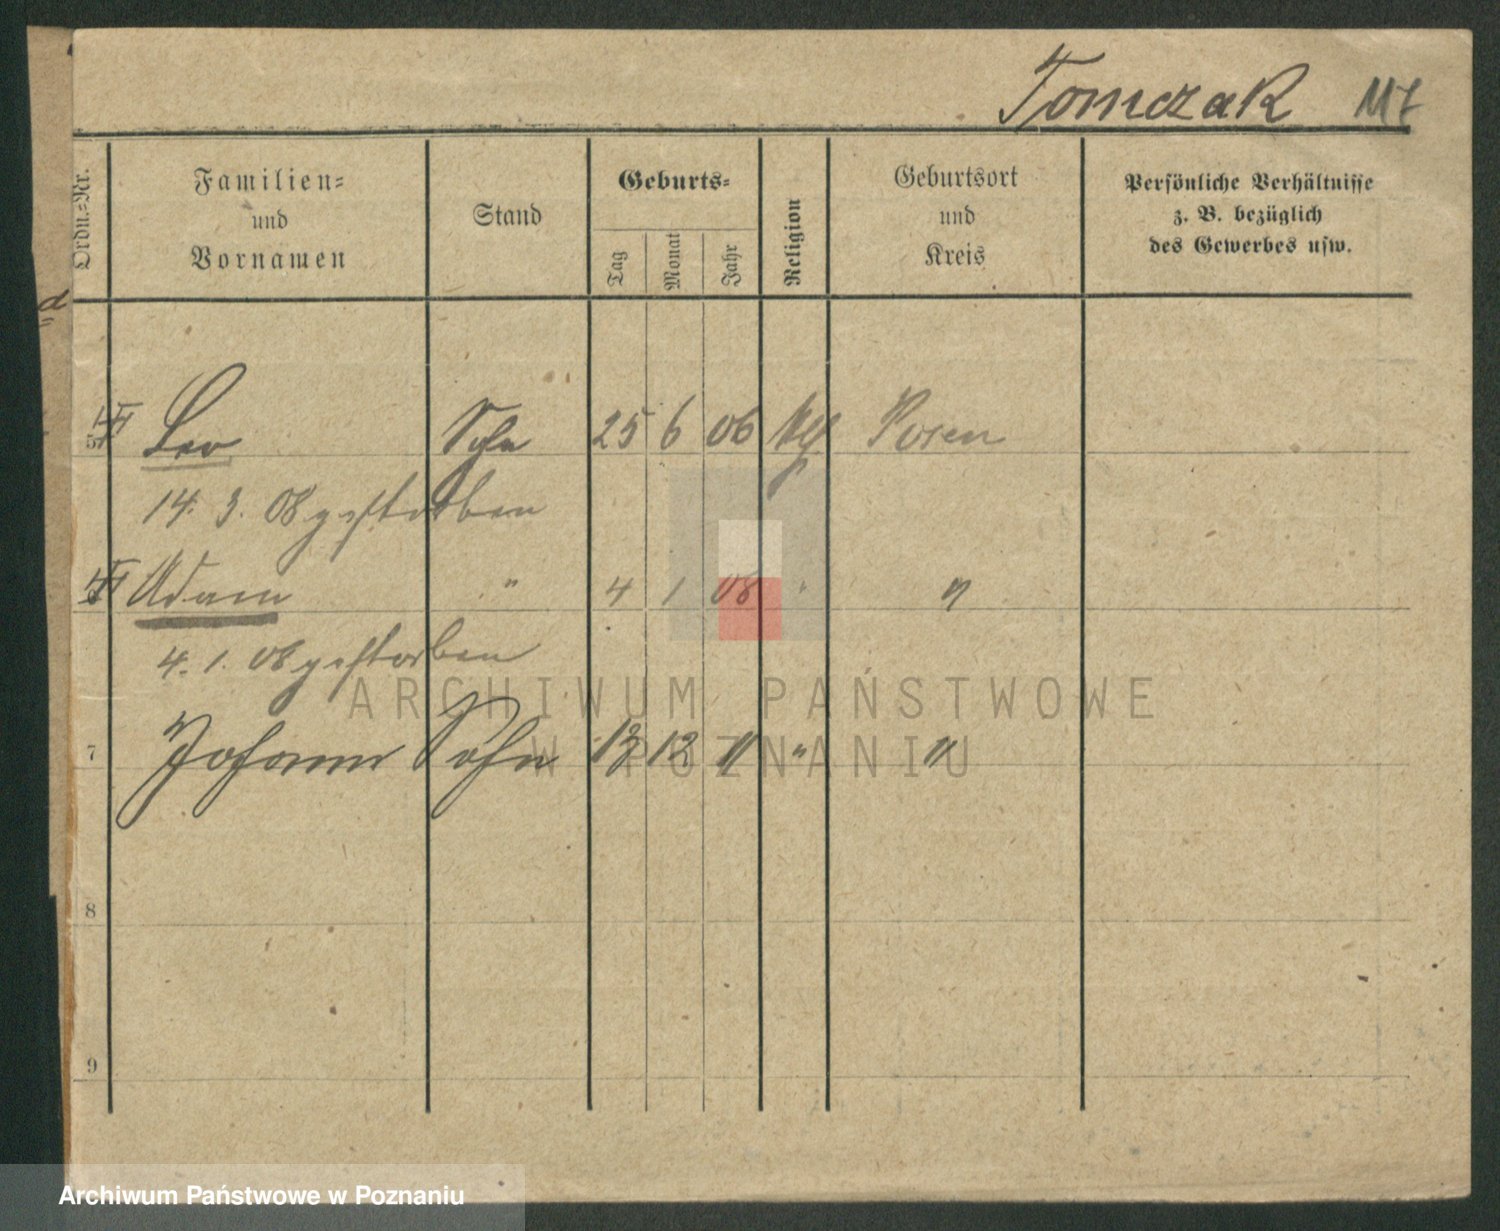 Tomczak
Ordn.-Nr.
Familien-
und
Vornamen
Stand
Geburts-
Tag
Monat
Jahr
Religion
Geburtsort
und
Kreis
Persönliche Verhältnisse
z. B. bezüglich
des Gewerbes usw.
d
5 Leo Sohn 25 6 06 Posen
14. 3. 08 gestorben
Adam " 4 1 08 " "
4. 1. 08 gestorben
ARCHIWUM PAŃSTWOWE
7 Johann Sohn 12 11 " "
W POZNANIU
8
9
Archiwum Państwowe w Poznaniu